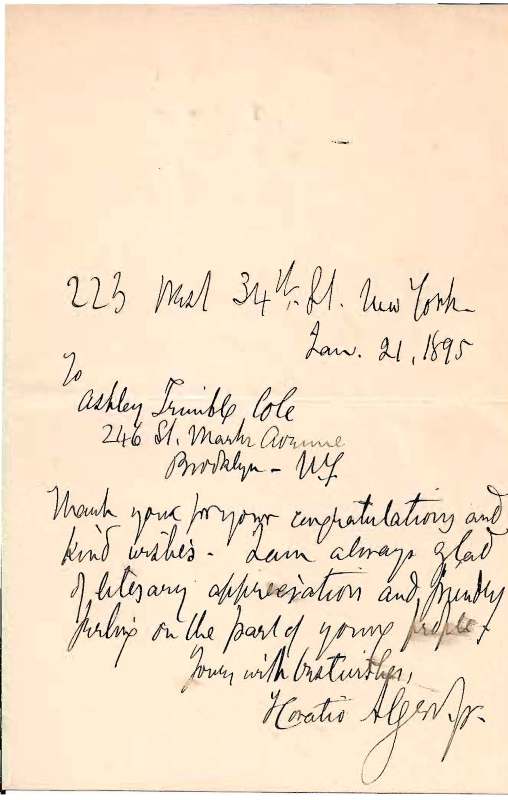 223 West 34th St. New York
Jan. 21, 1895
To
Ashley Trimble Cole
246 St. Marks Avenue
Brooklyn - NY
Thank you for your congratulations and
kind wishes - I am always glad
of literary appreciation and friendly
feeling on the part of young people.
Yours with best wishes,
Horatio Alger Jr.